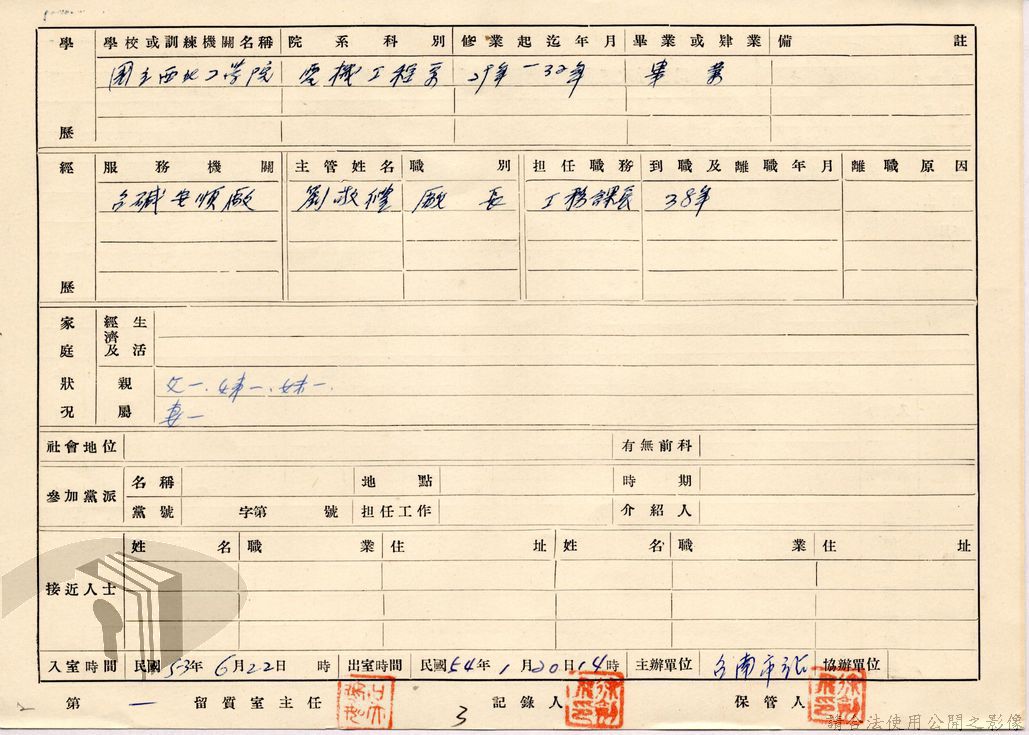 學歷 學校或訓練機關名稱 院系科別 修業起迄年月 畢業或肄業 備註
國立西北工學院 電機工程系 29年－32年 畢業
經歷 服務機關 主管姓名 職別 担任職務 到職及離職年月 離職原因
台碱安順廠 劉敬禮 廠長 工務課長 38年
家庭狀況 經濟及生活
親屬 父一．妹一．
妻一
社會地位 有無前科
參加黨派 名稱 地點 時期
黨號 字第 號 担任工作 介紹人
接近人士 姓名 職業 住址 姓名 職業 住址
入室時間 民國53年6月22日 時 出室時間 民國54年1月20日14時 主辦單位 台南市 協辦單位
第一留質室主任 3 記錄人 保管人
請合法使用公開之影像